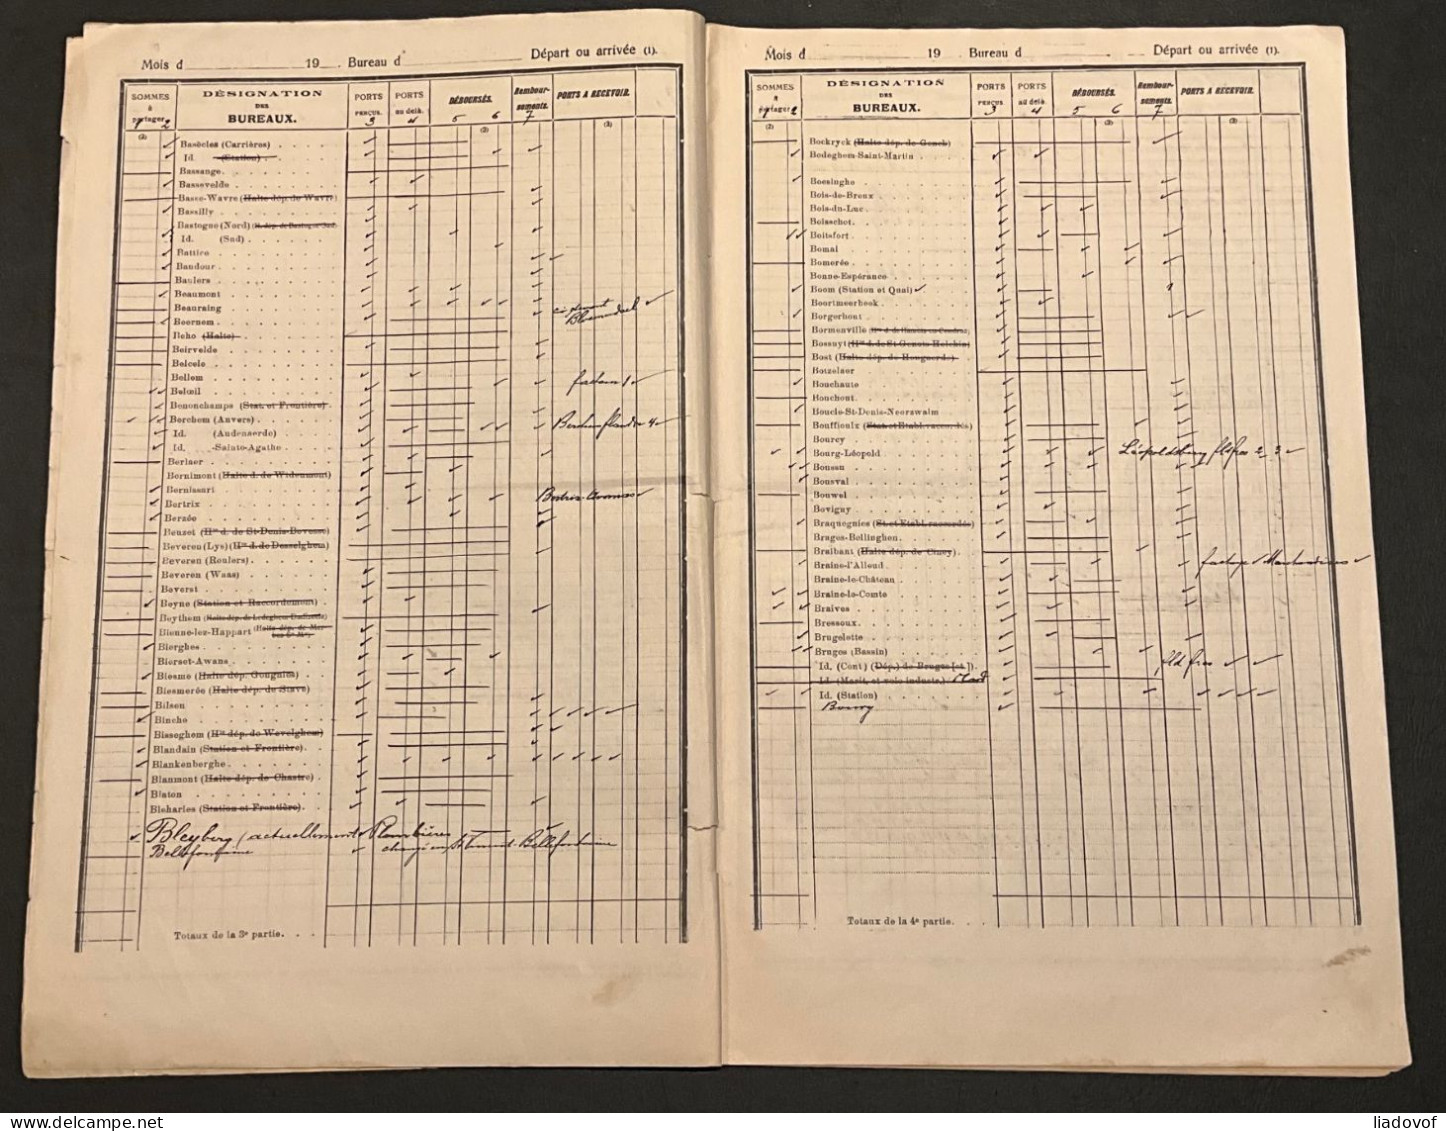 Mois d 19 Bureau d Départ ou arrivée (1).
SOMMES à partager DÉSIGNATION DES BUREAUX. PORTS PERÇUS. PORTS au delà. DÉBOURSÉS. Rembour-sements. PORTS A RECEVOIR.
1 2 3 4 5 6 7
(2) (2) (2)
Basècles (Carrières)
Id. (Station)
Bassange
Bassevelde
Basse-Wavre (Halte dép. de Wavre)
Bassilly
Bastogne (Nord)
Id. (Sud)
Battice
Baudour
Baulers
Beaumont
Beauraing ci-devant
Beernem Bloemendael
Beho (Halte)
Beirvelde
Belcele
Bellem
Belœil
Benonchamps (Stat. et Frontière)
Berchem (Anvers)
Id. (Audenaerde)
Id. -Sainte-Agathe
Berlaer
Bernimont (Halte d. de Wideumont)
Bernissart
Bertrix
Berzée
Beuzet (Hte d. de St-Denis-Bovesse)
Beveren (Lys) (Hte d. de Desselghem)
Beveren (Roulers)
Beveren (Waas)
Beverst
Beyne (Station et Raccordement)
Beythem
Bienne-lez-Happart
Bierghes
Bierset-Awans
Biesme (Halte dép. Gougnies)
Biesmerée (Halte dép. de Stave)
Bilsen
Binche
Bisseghem (Hte dép. de Wevelghem)
Blandain (Station et Frontière)
Blankenberghe
Blanmont (Halte dép. de Chastre)
Blaton
Bleharies (Station et Frontière)
Bleyberg (actuellement Plombières
Bellefontaine
Totaux de la 3e partie.
Mois d 19 Bureau d Départ ou arrivée (1).
SOMMES à partager DÉSIGNATION DES BUREAUX. PORTS PERÇUS. PORTS au delà. DÉBOURSÉS. Rembour-sements. PORTS A RECEVOIR.
1 2 3 4 5 6 7
(2) (2) (2)
Bockryck (Halte dép. de Genck)
Bodeghem-Saint-Martin
Boesinghe
Bois-de-Breux
Bois-du-Luc
Boisschot
Boitsfort
Bomal
Bomerée
Bonne-Espérance
Boom (Station et Quai)
Boortmeerbeek
Borgerhout
Bormenville
Bossuyt (Hte d. de St-Genois-Helchin)
Bost (Halte dép. de Hougaerde)
Botzelaer
Bouchaute
Bouchout
Boucle-St-Denis-Neerzwalm
Bouffioulx
Bourcy
Bourg-Léopold Léopoldsburg
Boussu
Bousval
Bouwel
Bovigny
Braquegnies (St. et Etabl. raccordés)
Brages-Bellinghen
Braibant (Halte dép. de Ciney)
Braine-l'Alleud
Braine-le-Château
Braine-le-Comte
Braives
Bressoux
Brugelette
Bruges (Bassin)
Id. (Cent) (Dép.) de Bruges
Id. (Marit. et voie industr.)
Id. (Station)
Totaux de la 4e partie.
liadovof